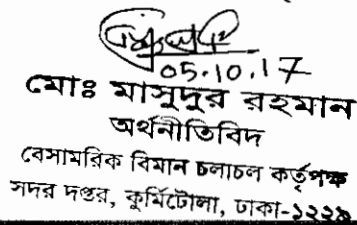 05.10.17
মোঃ মাসুদুর রহমান
অর্থনীতিবিদ
বেসামরিক বিমান চলাচল কর্তৃপক্ষ
সদর দপ্তর, কুর্মিটোলা, ঢাকা-১২২৯